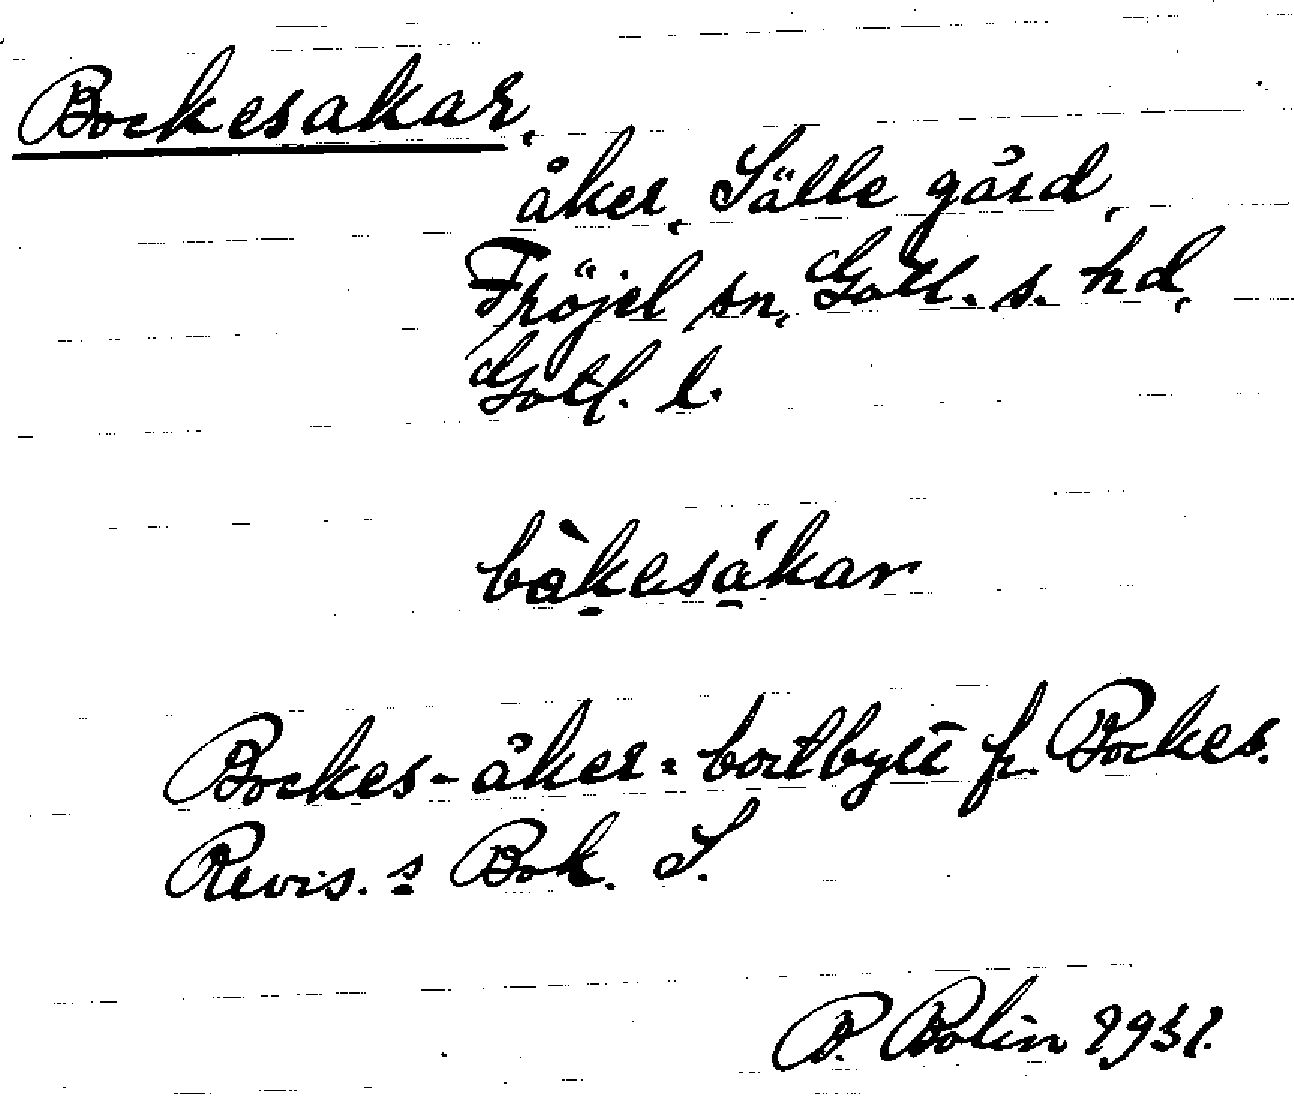 Bockesakar,
åker, Sälle gård,
Fröjel sn, Gotl. s. hd,
Gotl. l.
bàkesákar
Bockes-åker - bortbytt fr. Bockes.
Revis.s Bok. S.
B. Bolin 1931.